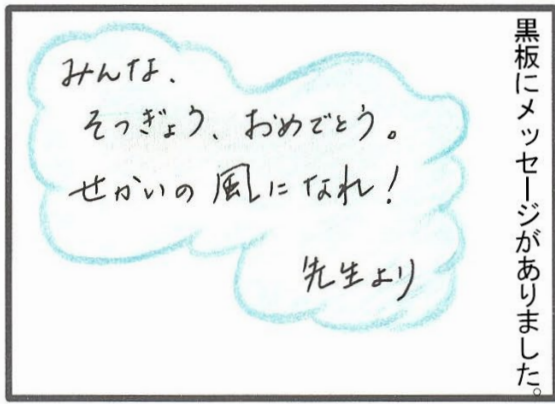 黒板にメッセージがありました。
みんな、
そつぎょう、おめでとう。
せかいの風になれ!
先生より